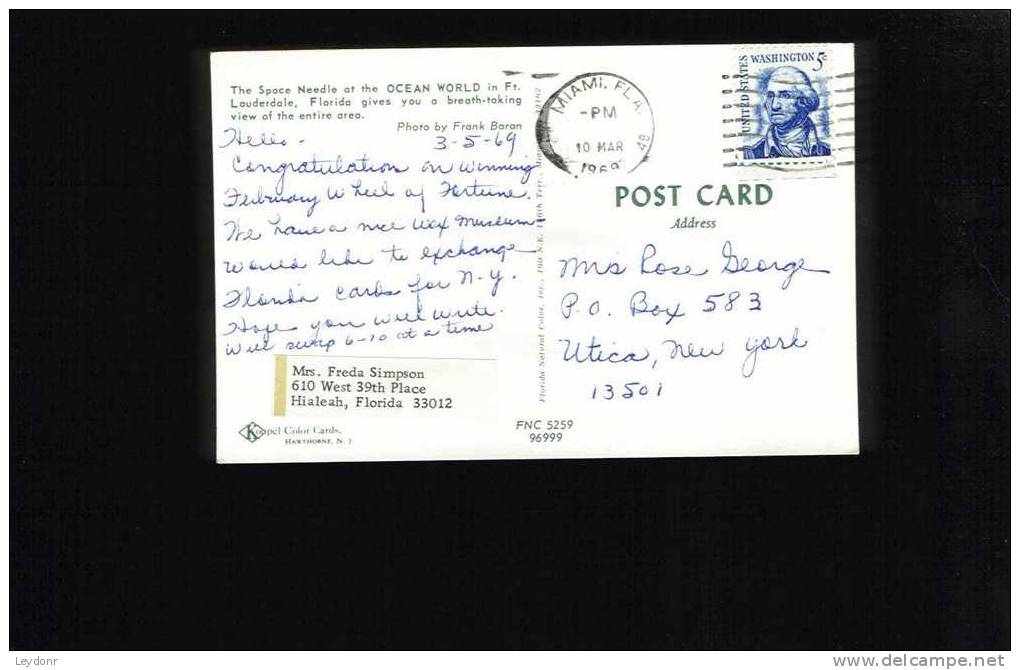 The Space Needle at the OCEAN WORLD in Ft.
Lauderdale, Florida gives you a breath-taking
view of the entire area.
Photo by Frank Boran
Hello - 3-5-69
Congratulation on winning
February Wheel of Fortune.
We have a nice Wax Museum -
Would like to exchange
Florida cards for N-Y.
Hope you will write.
Will swap 6-10 at a time
Mrs. Freda Simpson
610 West 39th Place
Hialeah, Florida 33012
Koppel Color Cards.
HAWTHORNE, N. J.
FNC 5259
96999
Florida Natural Color, Inc.,
MIAMI, FLA.
-PM
10 MAR
1969
48
UNITED STATES
WASHINGTON 5c
POST CARD
Address
Mrs Rose George
P.O. Box 583
Utica, New York
13501
Leydonr
www.delcampe.net